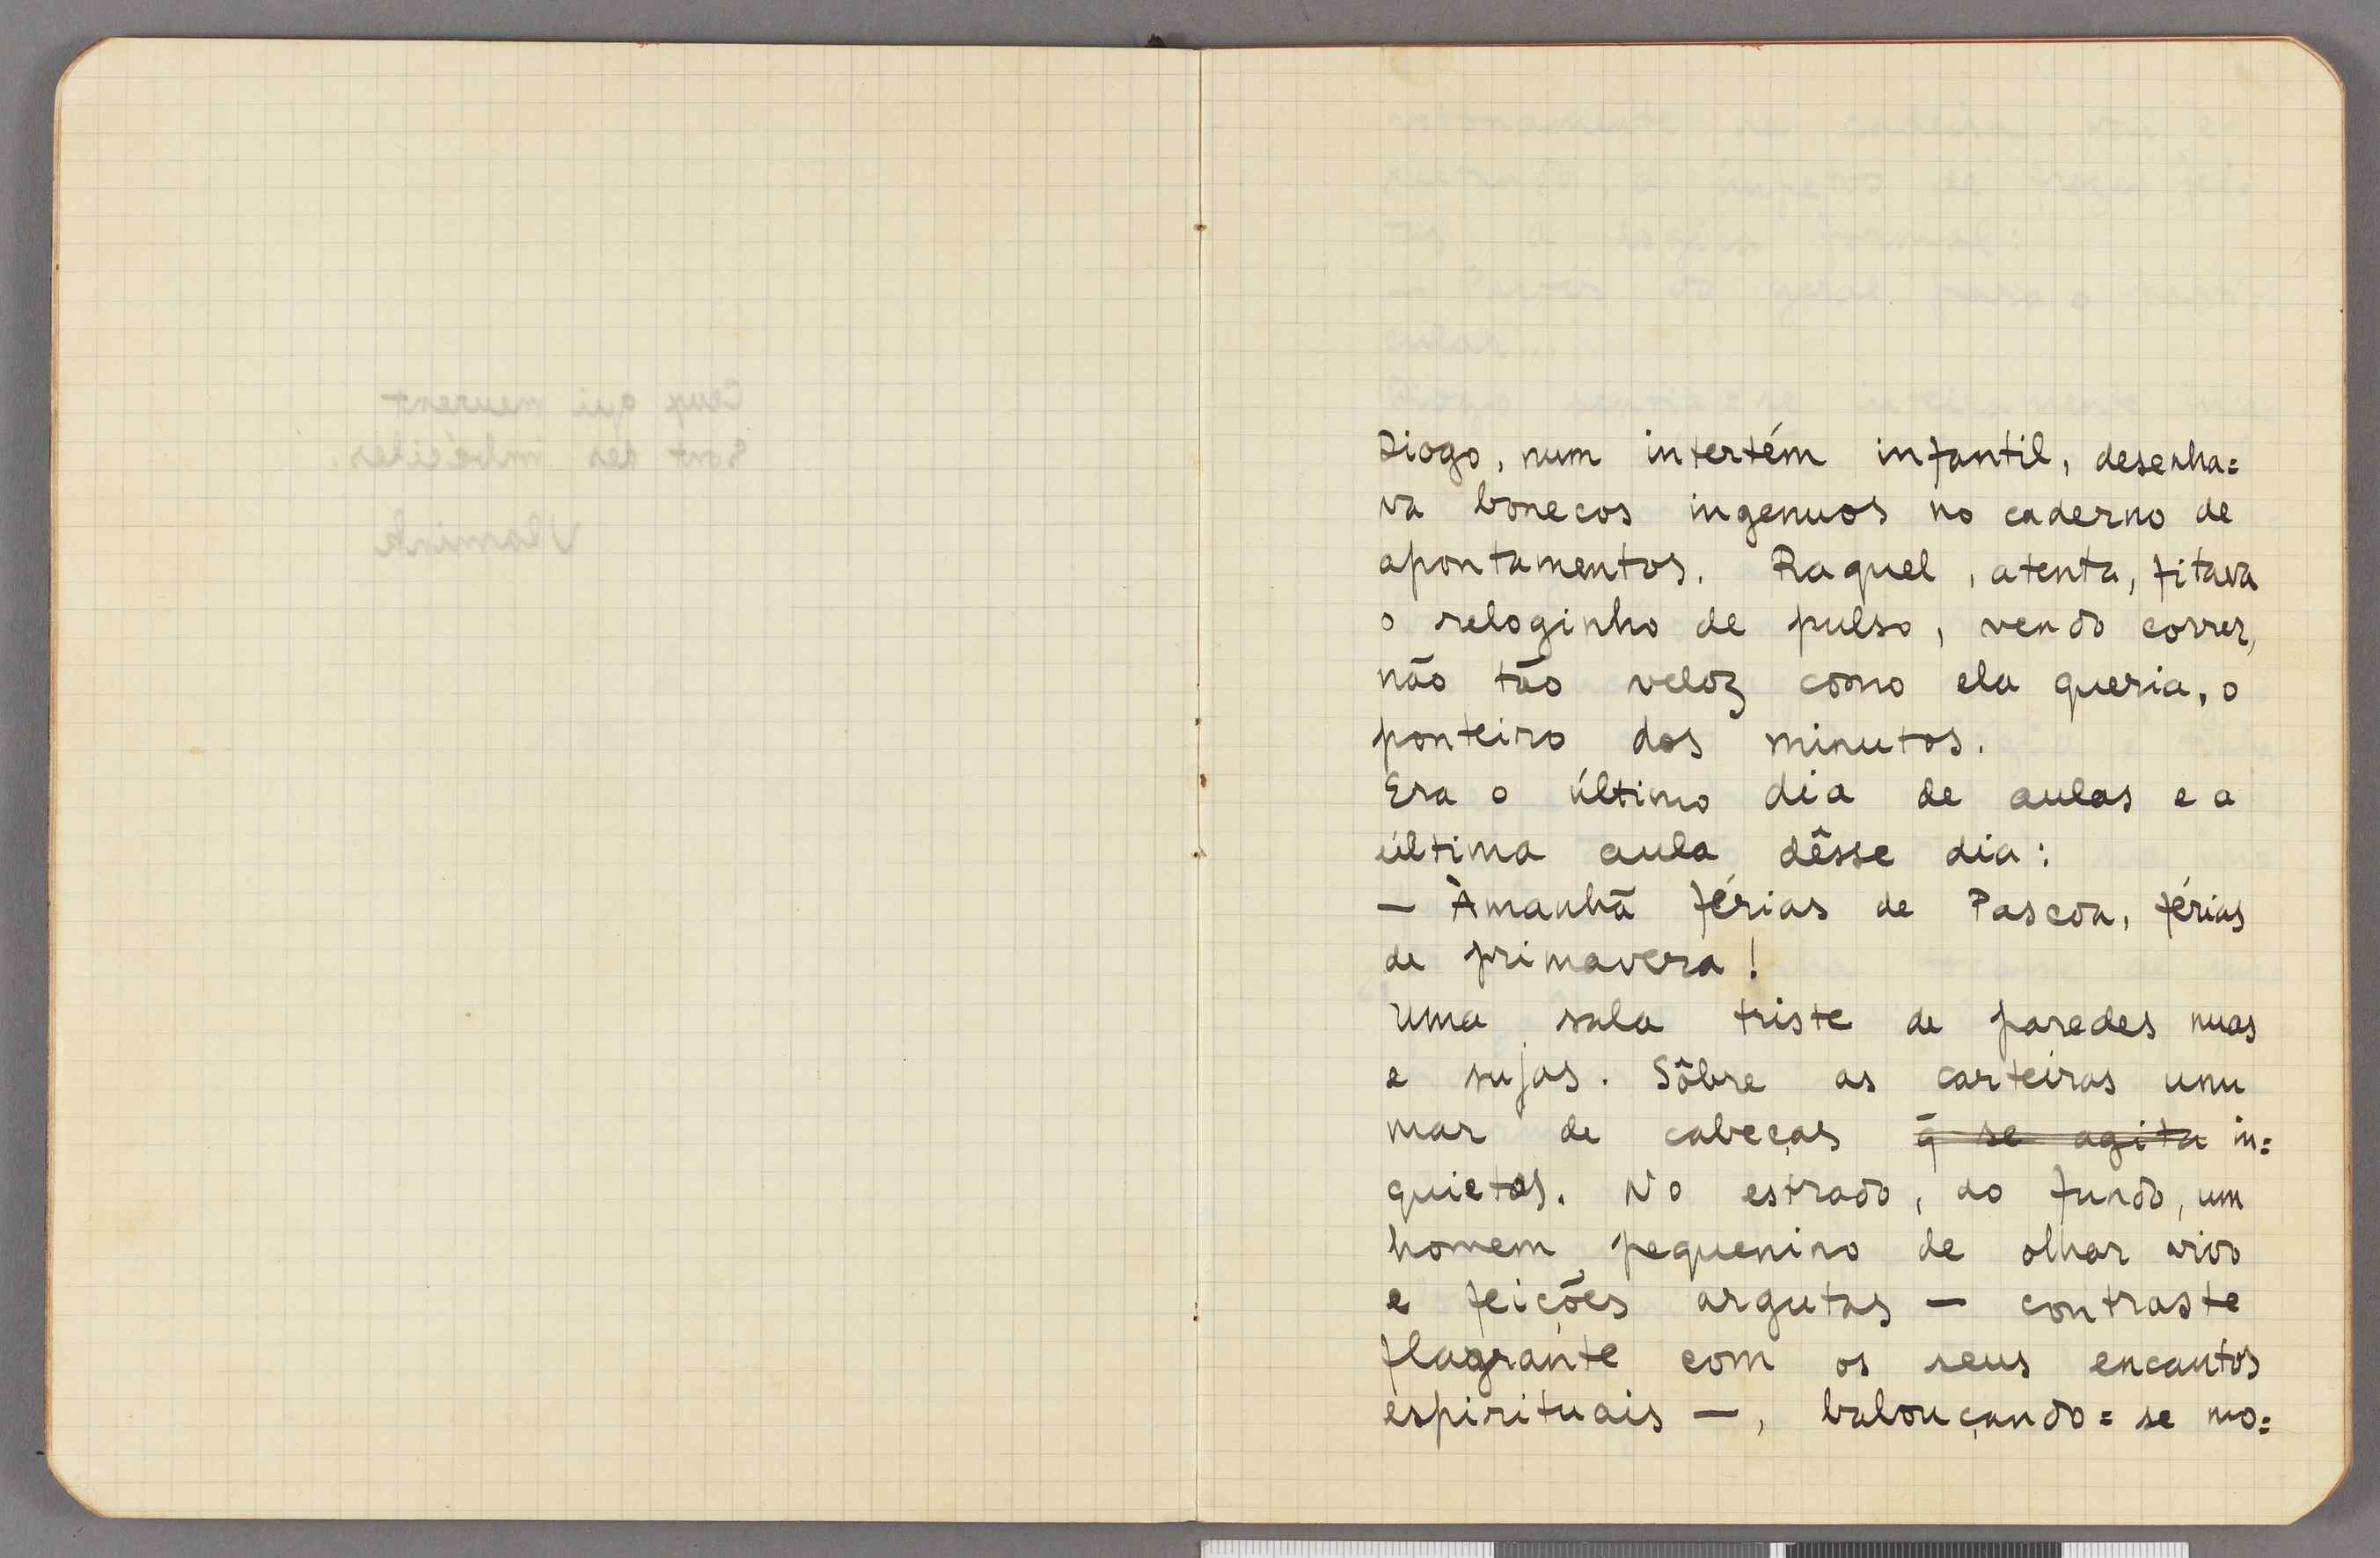 Ceux qui meurent
sont des imbéciles.
Vlamink
Diogo, num intertém infantil, desenha=
va bonecos ingenuos no caderno de
apontamentos. Raquel, atenta, fitava
o reloginho de pulso, vendo correr,
não tão veloz como ela queria, o
ponteiro dos minutos.
Era o último dia de aulas e a
última aula dêsse dia:
— Àmanhã férias de Pascoa, férias
de primavera!
Uma sala triste de paredes nuas
e sujas. Sôbre as carteiras um
mar de cabeças q̃ se agita in=
quietas. No estrado, ao fundo, um
homem pequenino de olhar vivo
e feições argutas — contraste
flagrante com os seus encantos
espirituais —, balouçando=se mo=